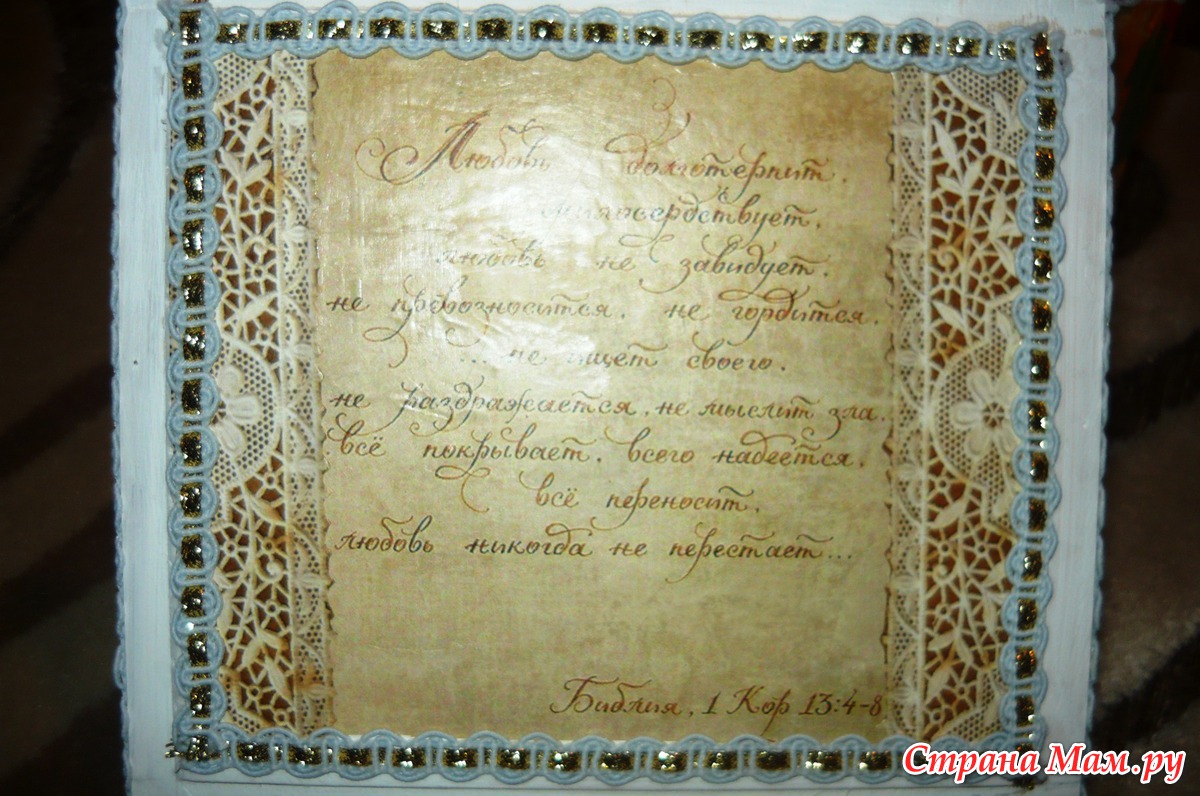 Любовь долготерпит,
милосердствует,
любовь не завидует,
не превозносится, не гордится,
... не ищет своего,
не раздражается, не мыслит зла,
всё покрывает, всего надеется,
всё переносит,
любовь никогда не перестаёт...
Библия, 1 Кор 13:4-8
Страна Мам.ру